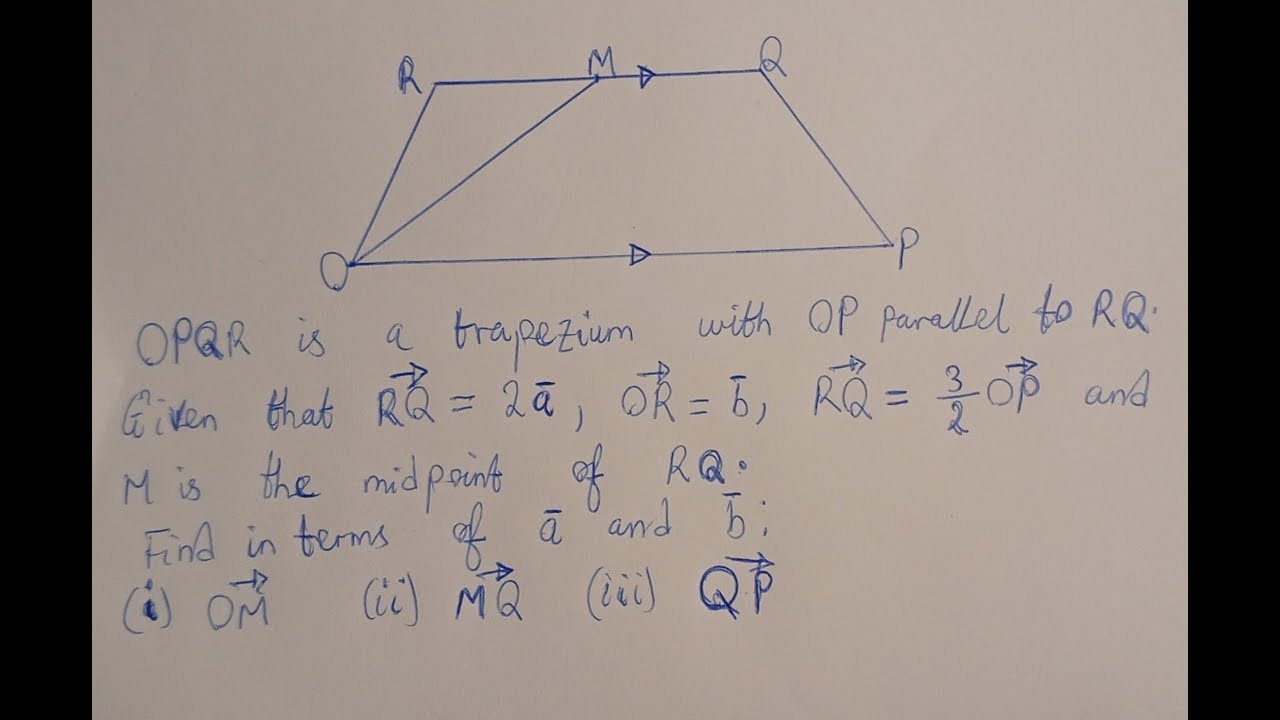 R M Q
O P
OPQR is a trapezium with OP parallel to RQ.
Given that $\overrightarrow{RQ}$ = 2ā, $\overrightarrow{OR}$ = b̄, $\overrightarrow{RQ}$ = $\frac{3}{2}$ $\overrightarrow{OP}$ and
M is the midpoint of RQ.
Find in terms of ā and b̄:
(i) $\overrightarrow{OM}$ (ii) $\overrightarrow{MQ}$ (iii) $\overrightarrow{QP}$